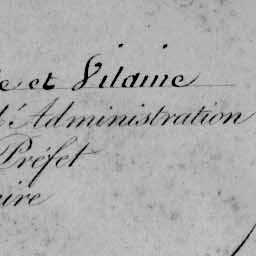 e et Vilaine
d'Administration
Préfet
aire